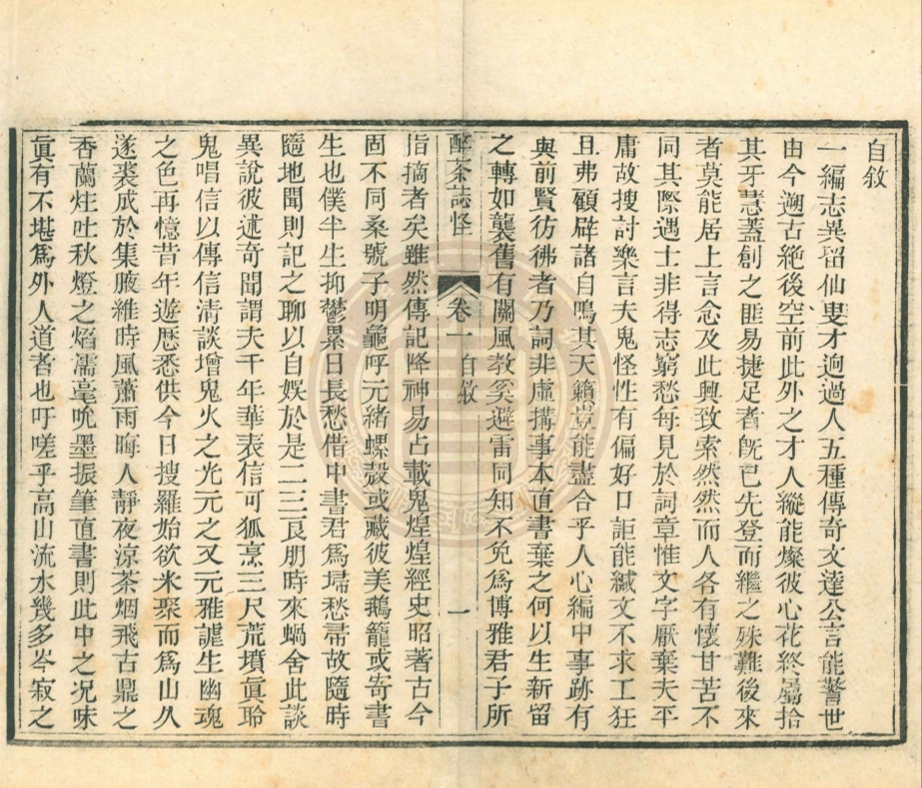 自敘
一編志異留仙叟才逈過人五種傳奇文達公言能警世
由今遡古絶後空前此外之才人縱能燦彼心花終屬拾
其牙慧蓋創之匪易捷足者既已先登而繼之殊難後來
者莫能居上言念及此興致索然然而人各有懷甘苦不
同其際遇士非得志窮愁每見於詞章惟文字厭棄夫平
庸故搜討樂言夫鬼怪性有偏好口詎能緘文不求工狂
且弗顧辟諸自鳴其天籟豈能盡合乎人心編中事跡有
與前賢彷彿者乃詞非虛搆事本直書棄之何以生新留
之轉如襲舊有關風教奚避雷同知不免爲博雅君子所
醉茶誌怪 卷一 自敘 一
指摘者矣雖然傳記降神易占載鬼煌煌經史昭著古今
固不同桑號子明龜呼元緒螺殼或藏彼美鵝籠或寄書
生也僕半生抑鬱累日長愁借中書君爲埽愁帚故隨時
隨地聞則記之聊以自娛於是二三良朋時來蝸舍此談
異說彼述奇聞謂夫千年華表信可狐烹三尺荒墳眞聆
鬼唱信以傳信清談增鬼火之光元之又元雅謔生幽魂
之色再憶昔年遊歷悉供今日搜羅始欲米聚而爲山久
遂裘成於集腋維時風蕭雨晦人靜夜涼茶烟飛古鼎之
香蘭炷吐秋燈之焰濡毫吮墨振筆直書則此中之况味
眞有不堪爲外人道者也吁嗟乎高山流水幾多岑寂之